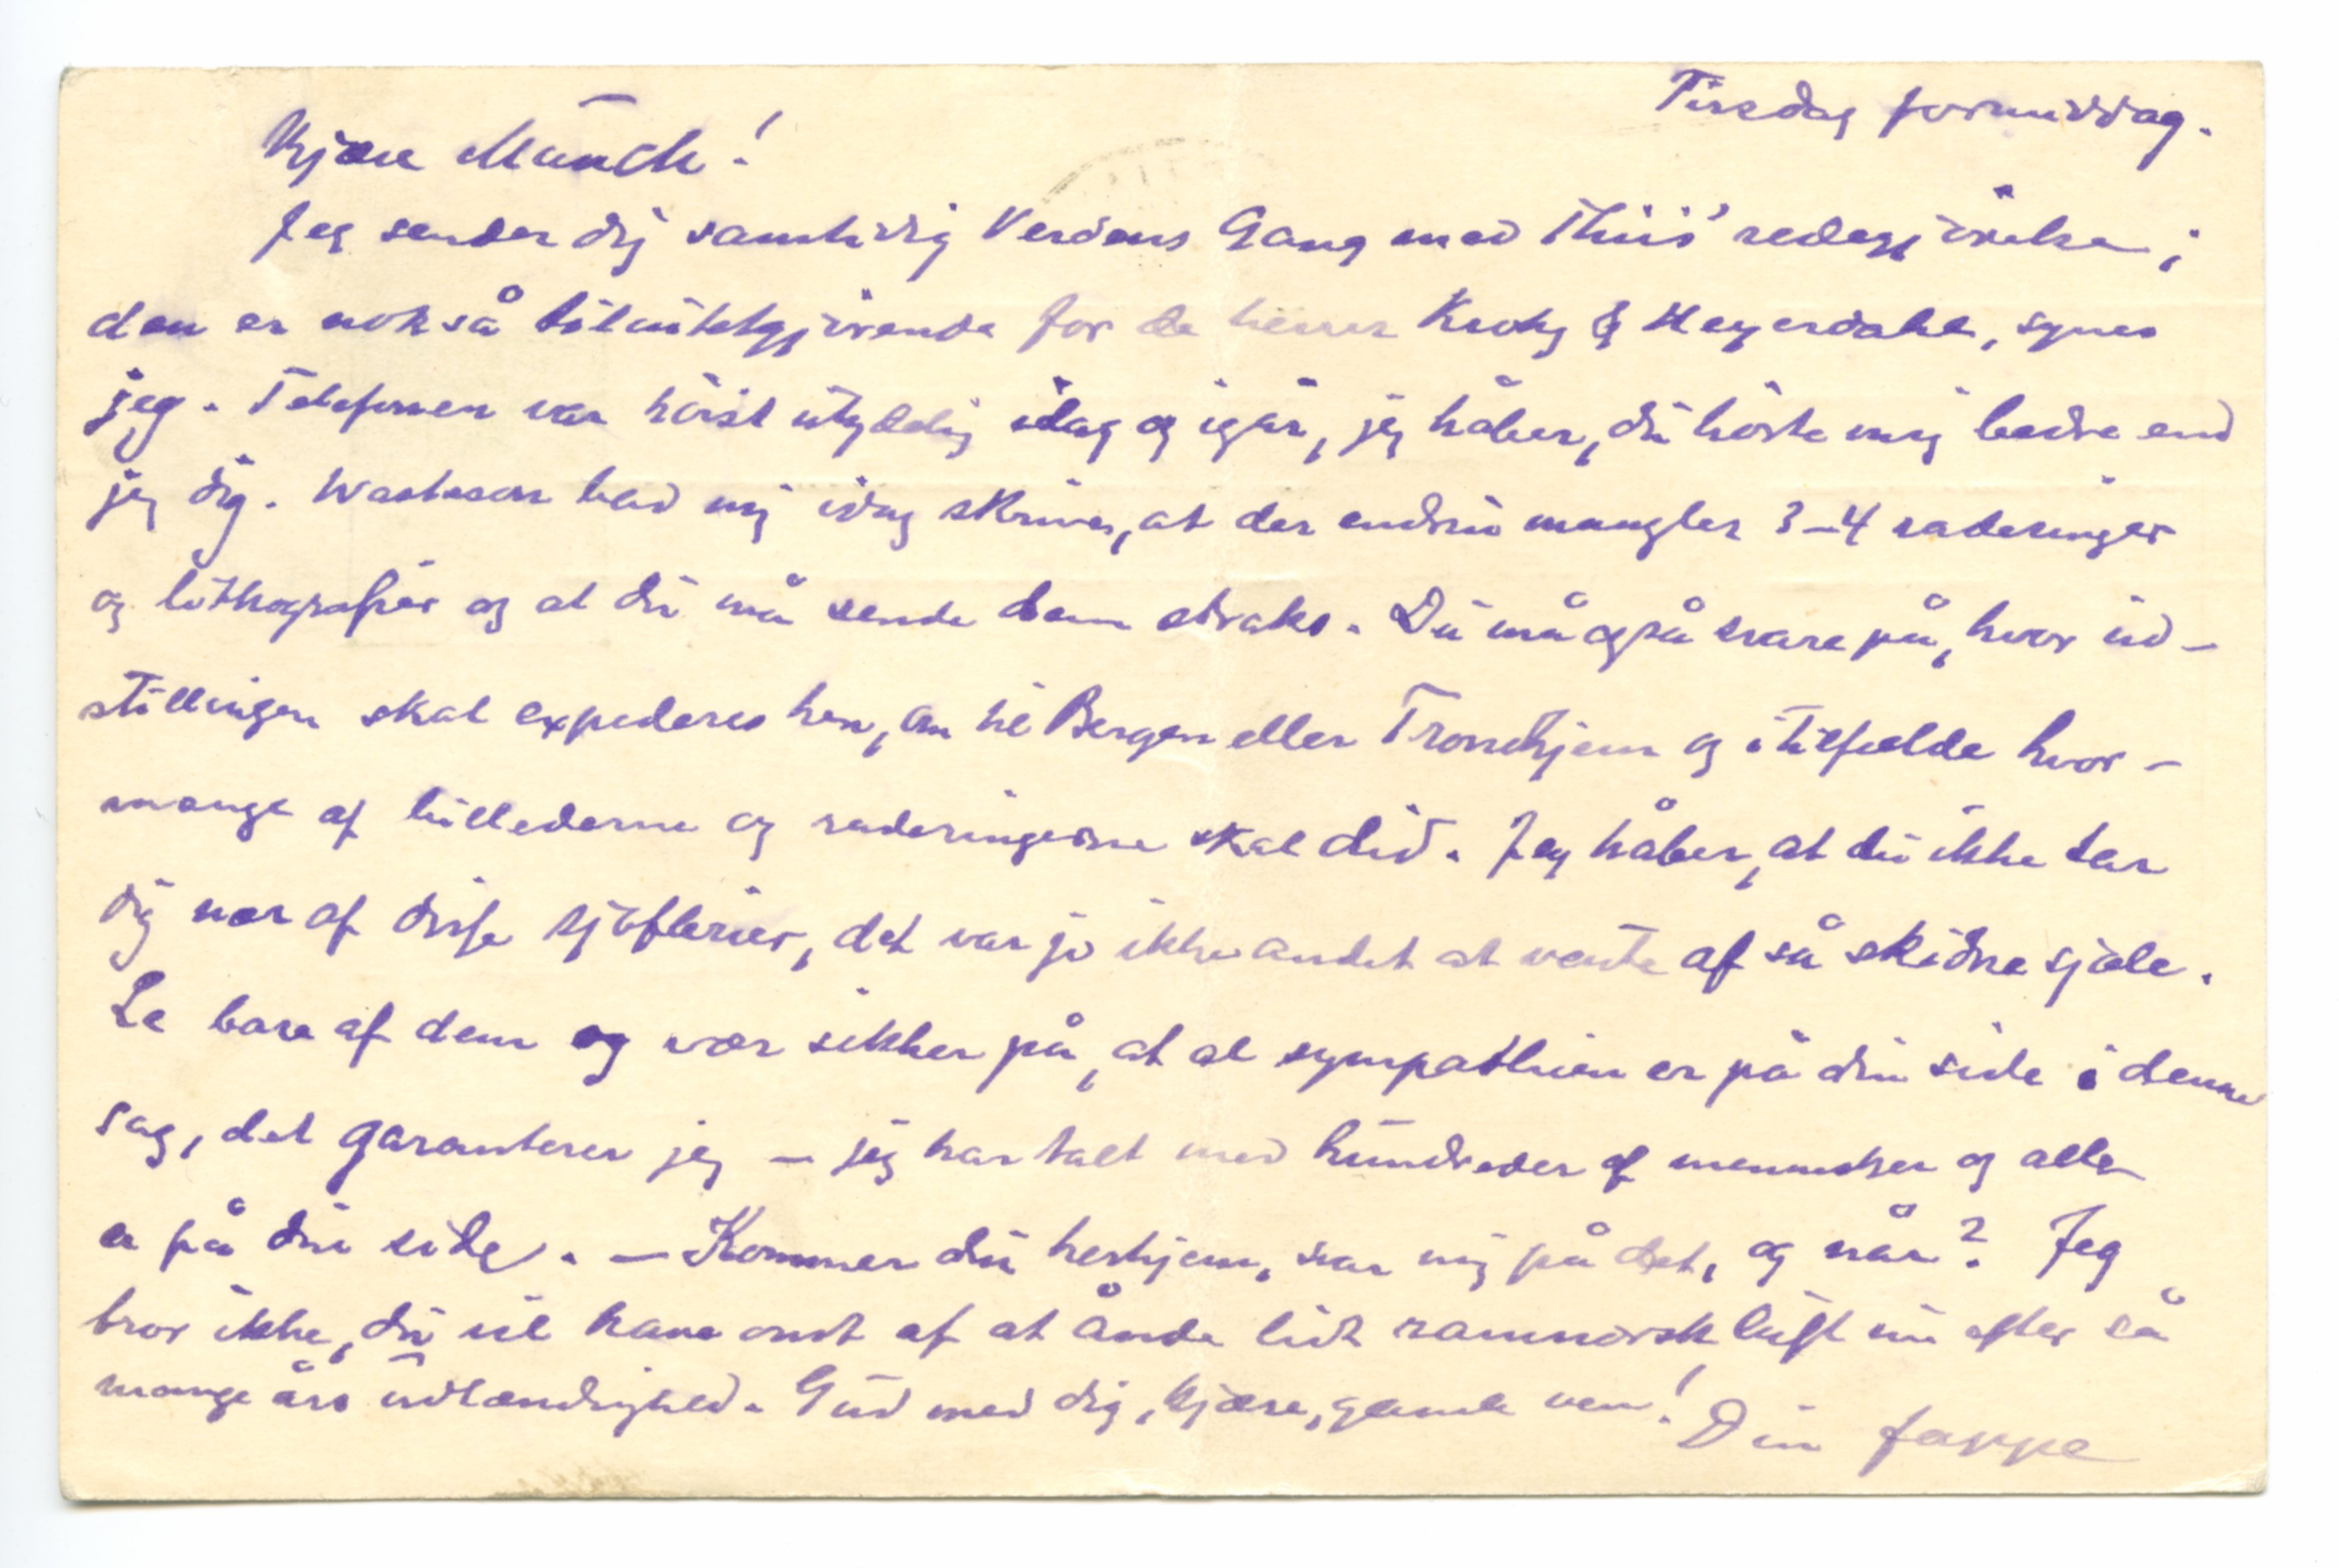 Tirsdag formiddag.
Kjære Munch!
Jeg sender dig samtidig Verdens Gang med Thiis' redegjörelse;
den er nokså tilintetgjörende for de herrer Krohg & Heyerdahl, synes
jeg. Telefonen var höist utydelig idag og igår, jeg håber, du hörte mig bedre end
jeg dig. Wentzel bad mig idag skrive, at der endnu mangler 3–4 raderinger
og lithografier og at du må sende dem straks. Du må også svare på, hvor ud-
stillingen skal expederes hen, om til Bergen eller Trondhjem og i tilfælde hvor-
mange af billederne og raderingerne skal did. Jeg håber, at du ikke tar
dig nær af disse sjöflerier, det var jo ikke andet at vente af så skidne sjæle.
Le bare af dem og vær sikker på, at al sympathien er på din side i denne
sag, det garanterer jeg – jeg har talt med hundreder af mennesker og alle
er på din side. – Kommer du herhjem, svar mig på det, og når? Jeg
tror ikke, du vil have ondt af at ånde lidt ramnorsk luft nu efter så
mange års udlændighed. Gud med dig, kjære, gamle ven! Din Jappe